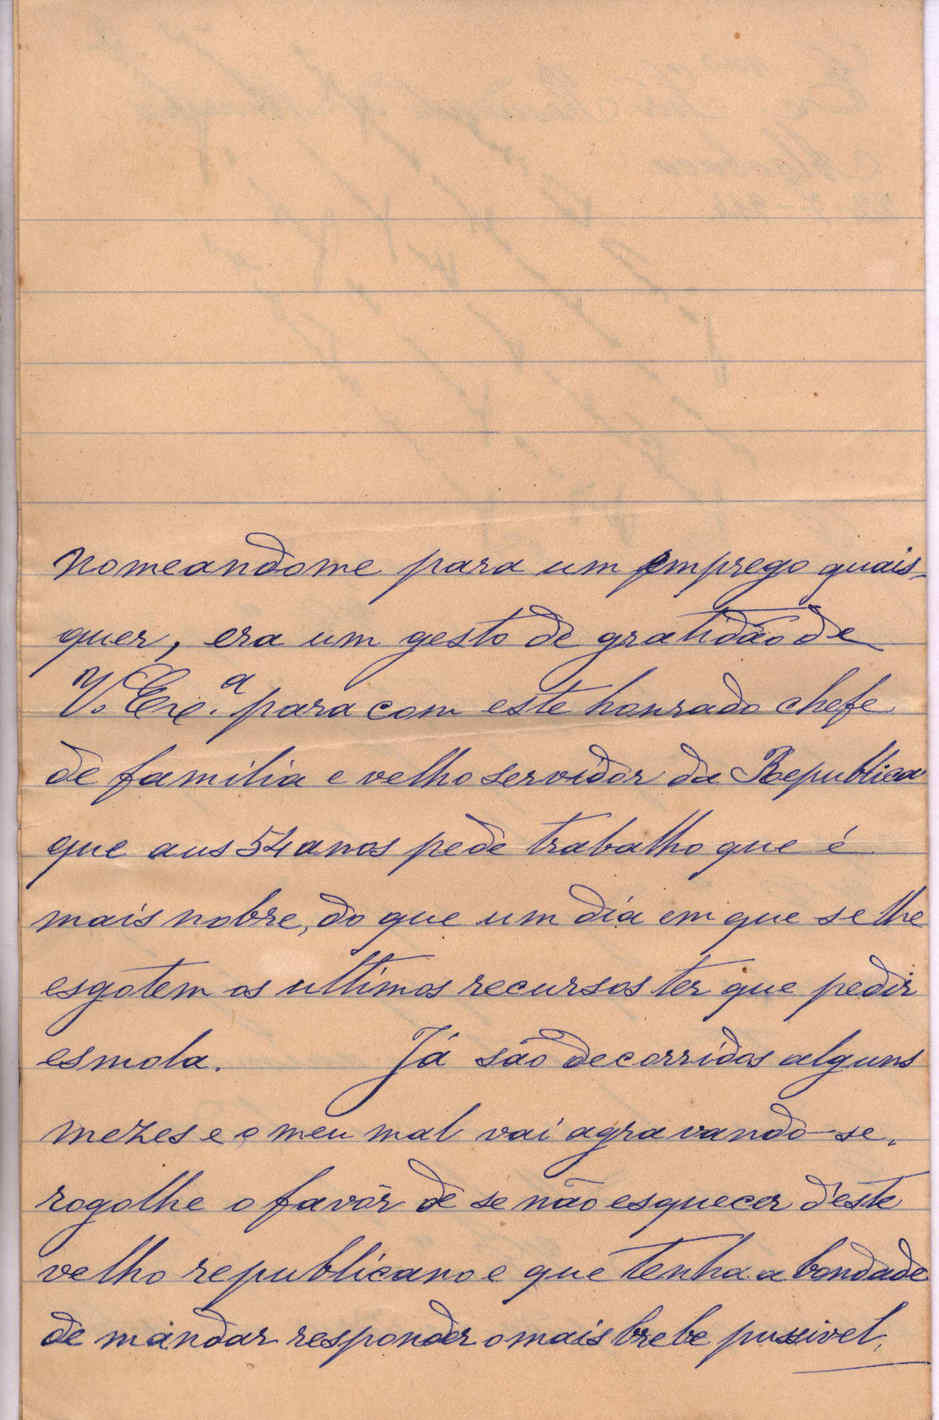 nomeandome para um emprego quais-
quer, era um gesto de gratidão de
V. Exc.ª para com este honrado chefe
de familia e velho servidor da Republica
que aus 54 anos pede trabalho que é
mais nobre, do que um dia em que se lhe
esgotem os ultimos recursos ter que pedir
esmola. Já são decorridos alguns
mezes e o meu mal vai agravando-se,
rogolhe o favôr de se não esquecer d'este
velho republicano e que tenha a bondade
de mandar responder o mais brebe pussivel,